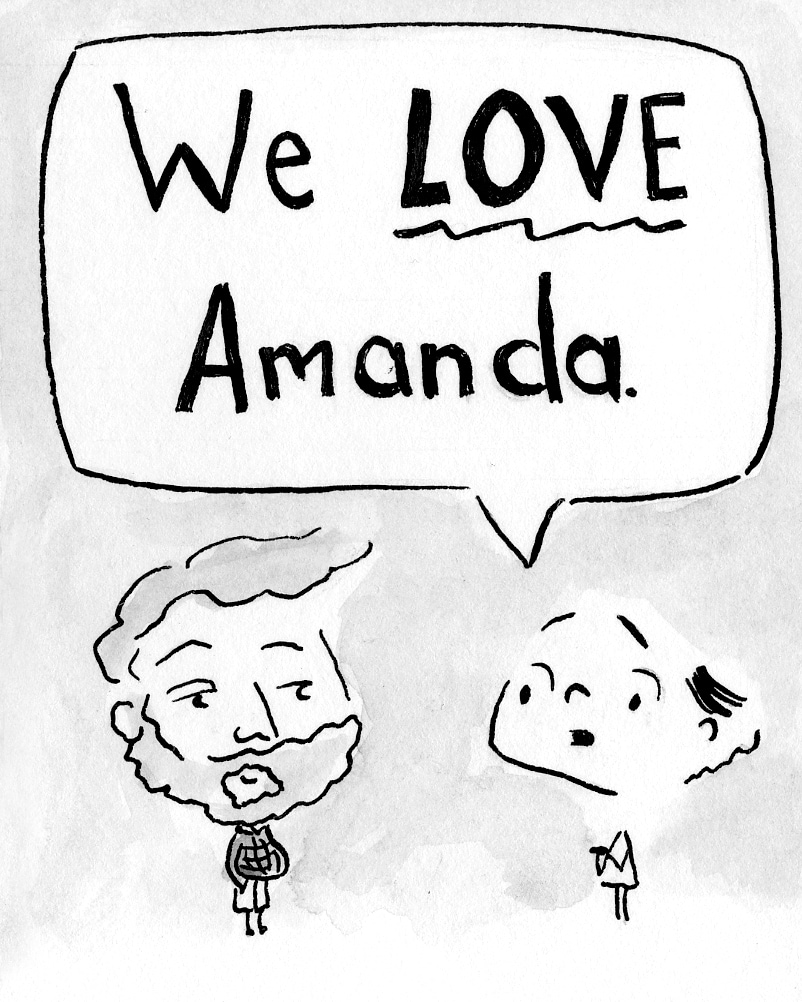 We LOVE
Amanda.